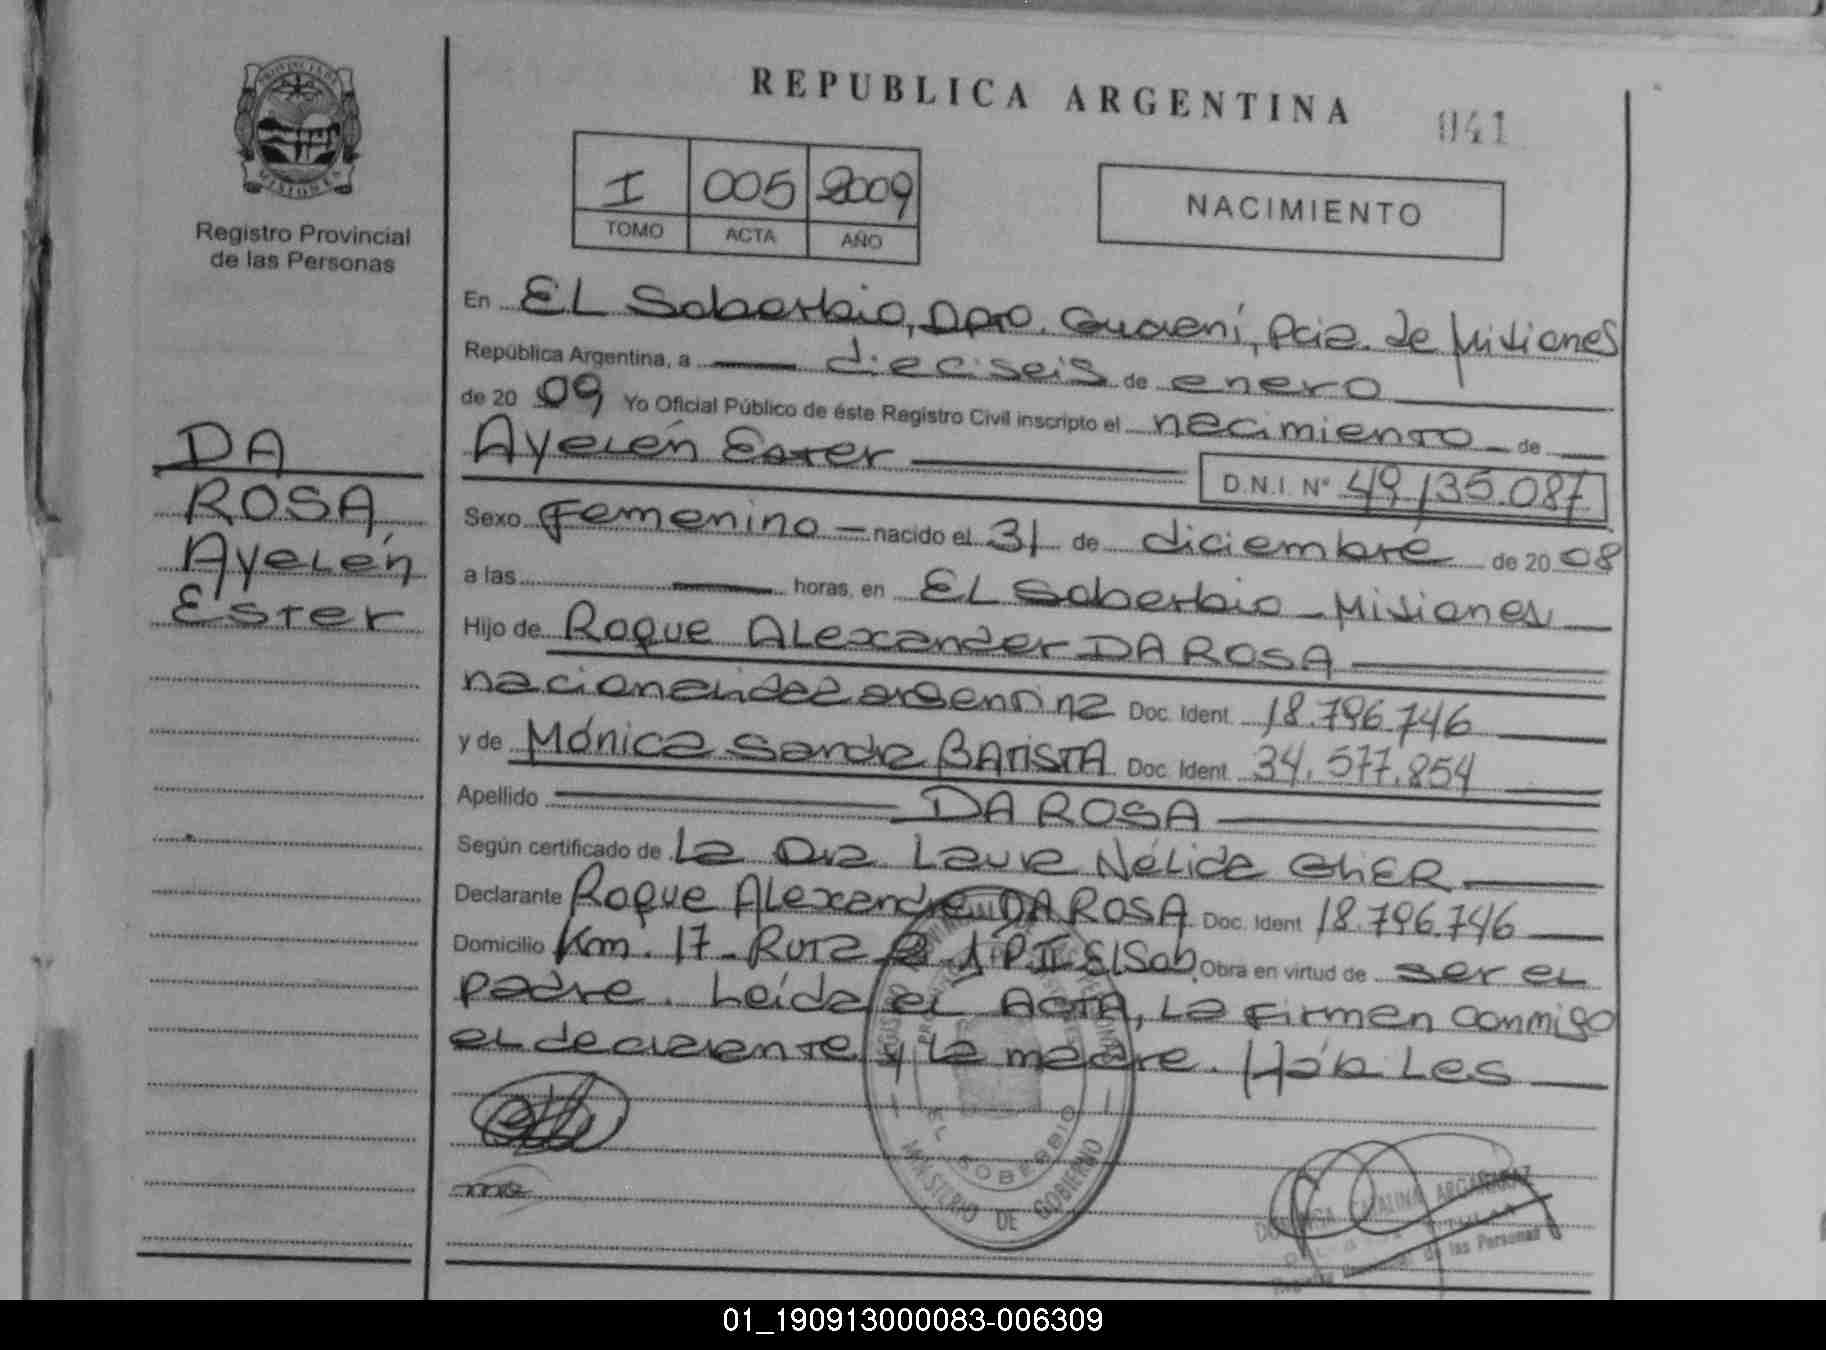 PROVINCIA DE
MISIONES
Registro Provincial
de las Personas
DA
ROSA,
Ayelén
Ester
REPUBLICA ARGENTINA
041
I 005 2009
TOMO ACTA AÑO
NACIMIENTO
En EL Soberbio, Dpto. Guaraní, Pcia. de Misiones
República Argentina, a dieciseis de enero
de 2009 Yo Oficial Público de éste Registro Civil inscripto el nacimiento de
Ayelén Ester D.N.I. N° 49.135.087
Sexo Femenino nacido el 31 de diciembre de 2008
a las horas, en EL Soberbio - Misiones
Hijo de Roque ALexander DA ROSA
nacionalidad argentina Doc. Ident. 18.796.746
y de Mónica Sandra BATISTA Doc. Ident. 34.577.854
Apellido DA ROSA
Según certificado de La Dra Laura Nélida
Declarante Roque ALexander DA ROSA Doc. Ident 18.796.746
Domicilio Km. 17 - Ruta P. II El Sob. Obra en virtud de ser el
padre. Leída el ACTA, La firman conmigo
el declarante y la madre. Hábiles
EL SOBERBIO
MINISTERIO DE GOBIERNO
CATALINA ARGAÑARAZ
de las Personas
01_190913000083-006309